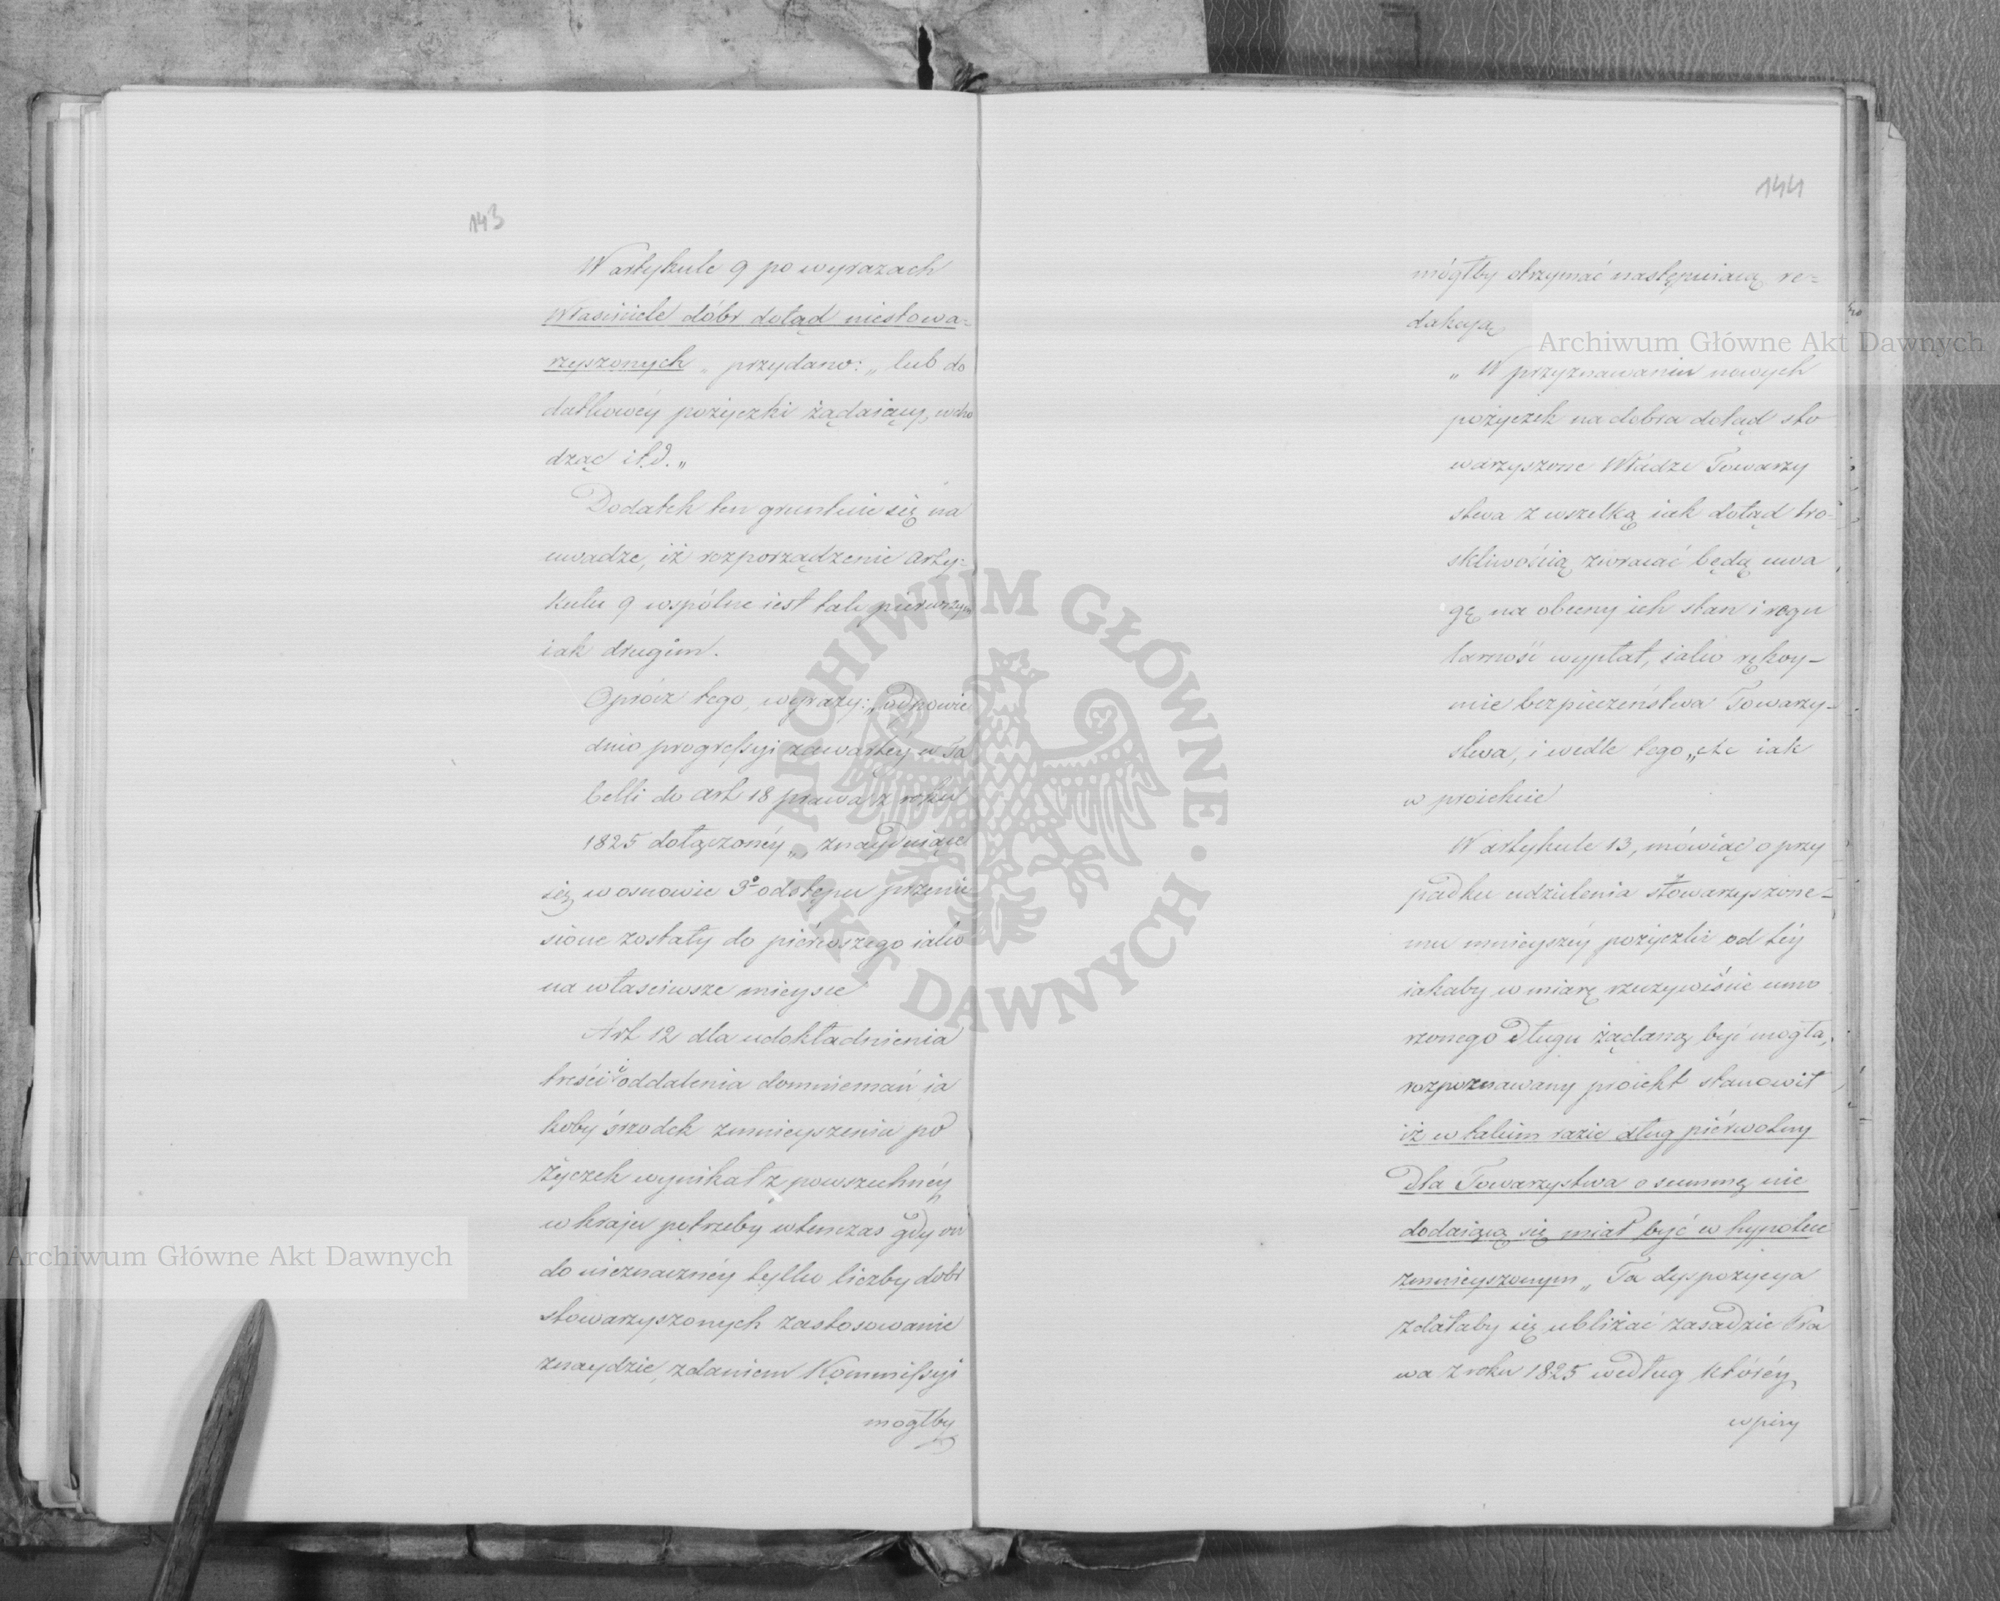 143
W artykule 9 po wyrazach
Właściciele dóbr dotąd niestowa-
rzyszonych „ przydano: „ lub do
datkowéy pożyczki żądaiący, wcho
dząc i t.d. „
Dodatek ten gruntuie się na
uwadze, iż rozporządzenie arty-
kułu 9 wspólne iest tak pierwszym
iak drugim.
Oprócz tego, wyrazy: „odpowie
dnio progressyi zawartey w Ta
belli do art 18 prawa z roku
1825 dołączonéy „ znayduiące
się w osnowie 3º odstępu przenie
sione zostały do piérwszego iako
na właściwsze mieysce
Art 12 dla udokładnienia
treści i oddalenia domniemań ia
koby śrzodek zmnieyszenia po
życzek wynikał z powszechnéy
w kraju potrzeby wtenczas gdy on
do nieznacznéy tylko liczby dóbr
stowarzyszonych zastosowanie
znaydzie, zdaniem Kommissyi
mógłby
144
mógłby otrzymać następuiącą re-
dakcyą
„ W przyznawaniu nowych
pożyczek na dobra dotąd sto
warzyszone Władze Towarzy
stwa z wszelką iak dotąd tro-
skliwością zwracać będą uwa
gę na obecny ich stan i regu
larność wypłat, iako rękoy-
mie bezpieczeństwa Towarzy-
stwa, i wedle tego „ etc iak
w proiekcie
W artykule 13, mówiąc o przy
padku udzielenia stowarzyszone-
mu mnieyszéy pożyczki od téy
iakaby w miarę rzeczywiście umo
rzonego długu żądaną być mogła,
rozpoznawany proiekt stanowił
iż w takim razie dług piérwotny
dla Towarzystwa o summę nie
dodaiącą się miał być w hypotece
zmnieyszonym „ Ta dyspozycya
zdałaby się ubliżać zasadzie Pra
wa z roku 1825 według któréy
wpisy
Archiwum Główne Akt Dawnych
Archiwum Główne Akt Dawnych
ARCHIWUM GŁÓWNE AKT DAWNYCH